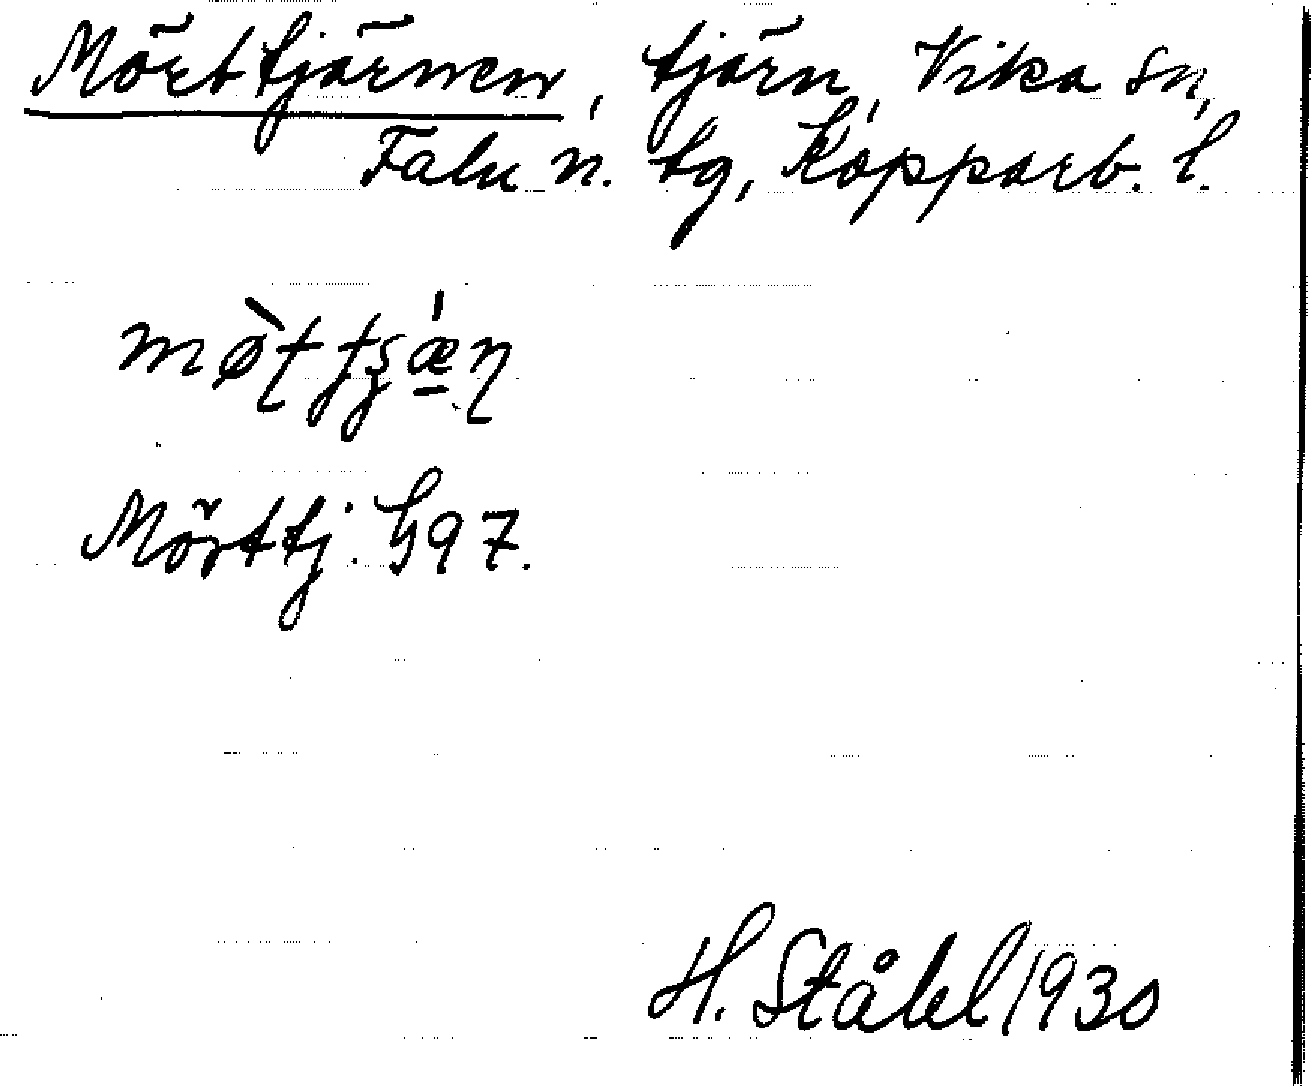 Mörttjärnen, tjärn, Vika sn,
Falu n. tg, Kopparb. l.
Mörttj. G97.
H. Ståhl 1930